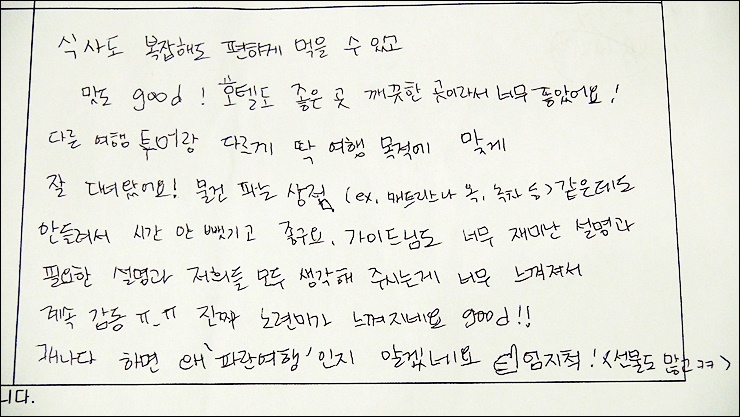 식사도 복잡해도 편하게 먹을 수 있고
맛도 good! 호텔도 좋은 곳 깨끗한 곳이라서 너무 좋았어요!
다른 여행 투어랑 다르게 딱 여행 목적에 맞게
잘 다녀왔어요! 물건 파는 상점 (ex. 매트리스나 옥, 녹차 등) 같은데도
안들려서 시간 안 뺏기고 좋구요. 가이드님도 너무 재미난 설명과
필요한 설명과 저희들 모두 생각해 주시는게 너무 느껴져서
계속 감동 ㅠ_ㅠ 진짜 노련미가 느껴지네요 good!!
캐나다 하면 왜 '파란여행' 인지 알겠네요 엄지척! <선물도 많고 ㅋㅋ>
니다.